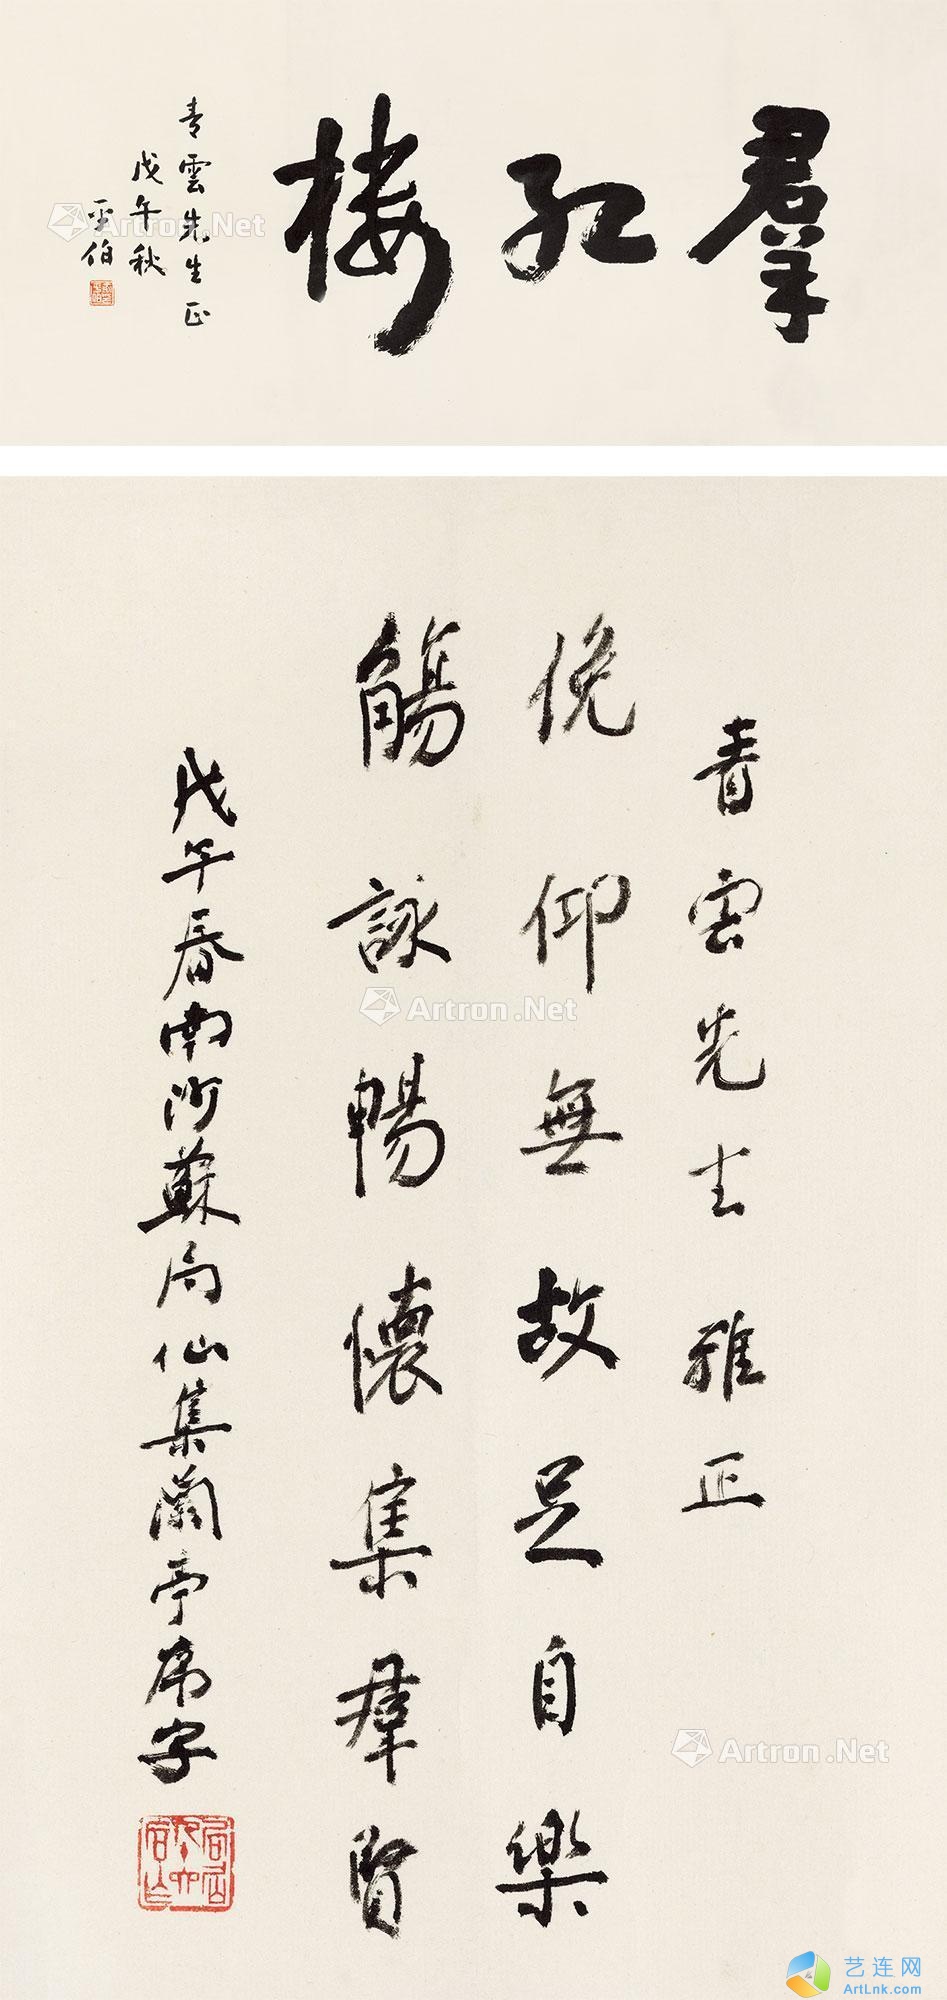 羣玑楼
青雲先生正
戊午秋
平伯
青雲先生雅正
俛仰無故足自樂
觴詠暢懷集羣賢
戊午春南沙蘇局仙集蘭亭序字
Artron.Net
Artron.Net
Artron.Net
Artron.Net
Artron.Net
艺连网
ArtLnk.com